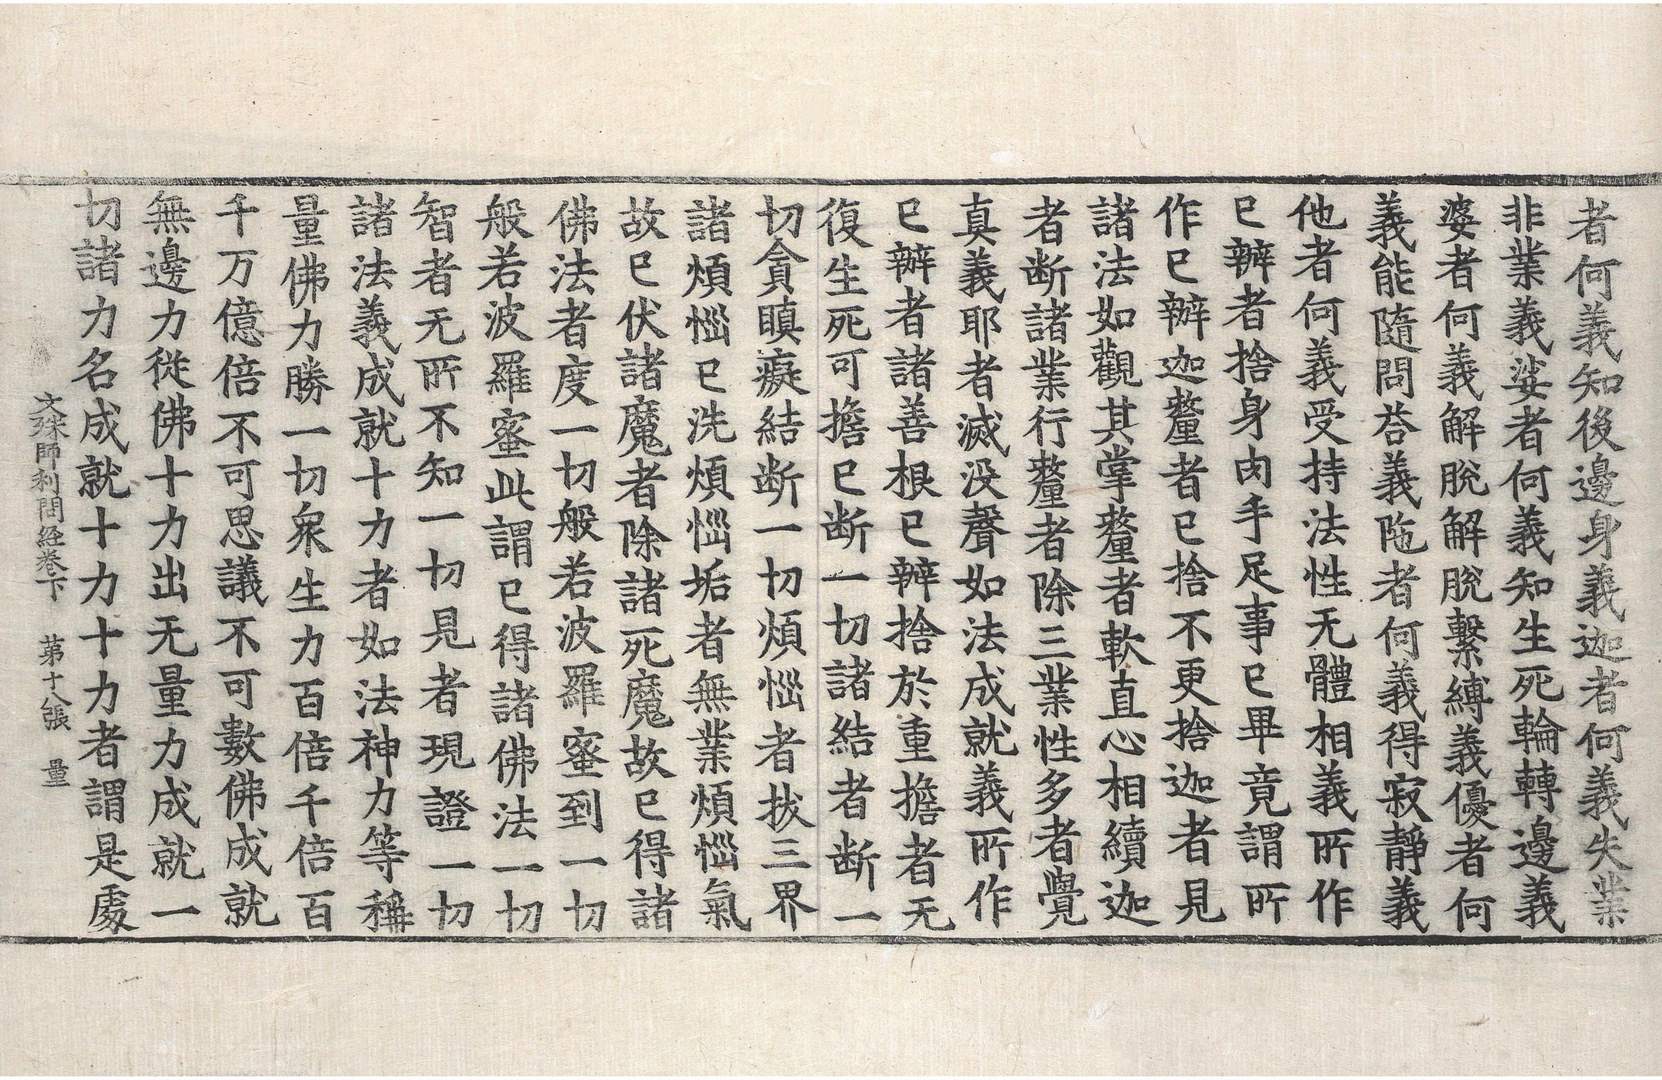 者何義知後邊身義迦者何義失業
非業義娑者何義知生死輪轉邊義
婆者何義解脫解脫繫縛義優者何
義能隨問荅義陁者何義得寂靜義
他者何義受持法性无體相義所作
已辦者捨身肉手足事已畢竟謂所
作已辦迦釐者已捨不更捨迦者見
諸法如觀其掌釐者軟直心相續迦
者断諸業行釐者除三業性多者覺
真義耶者滅没聲如法成就義所作
已辦者諸善根已辦捨於重擔者无
復生死可擔已断一切諸結者断一
切貪瞋癡結断一切煩惱者拔三界
諸煩惱已洗煩惱垢者無業煩惱氣
故已伏諸魔者除諸死魔故已得諸
佛法者度一切般若波羅蜜到一切
般若波羅蜜此謂已得諸佛法一切
智者无所不知一切見者現證一切
諸法義成就十力者如法神力等稱
量佛力勝一切衆生力百倍千倍百
千万億倍不可思議不可數佛成就
無邊力從佛十力出无量力成就一
切諸力名成就十力十力者謂是處
文殊師利問經卷下　第十八張　量